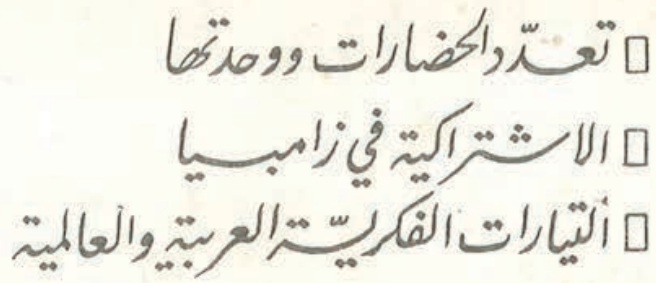 ▯ تعدّد الحضارات ووحدتها
▯ الاشتراكية في زامبيا
▯ ألتيارات الفكريّة العربية والعالمية